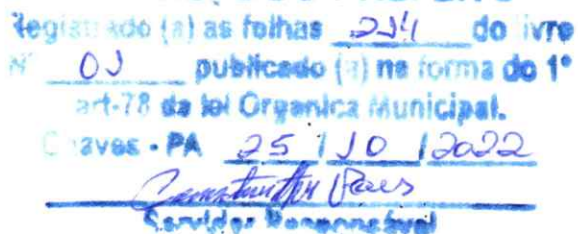 Registrado (a) as folhas 214 do livro
Nº 01 publicado (a) na forma do 1º
art-78 da lei Organica Municipal.
Chaves - PA 25 / 10 / 2022
Servidor Responsável